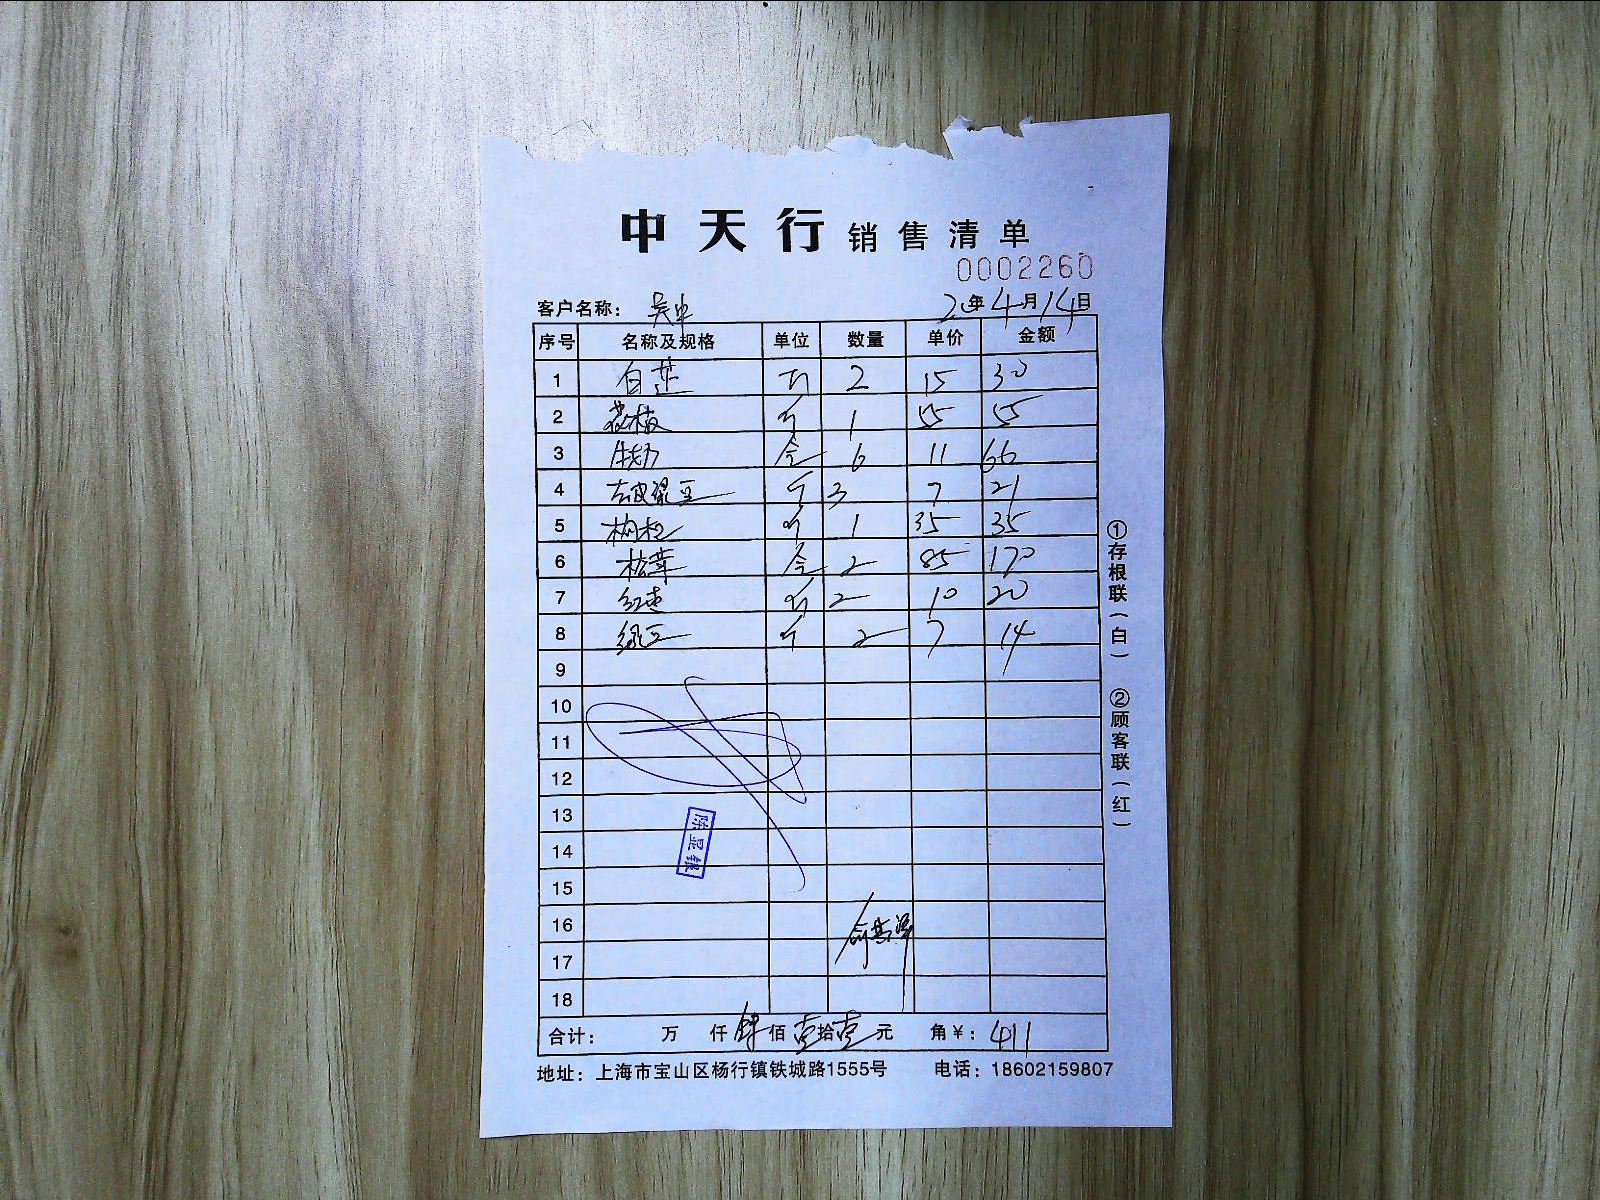 中天行 销售清单
0002260
客户名称： 吴中 20年4月14日
序号 名称及规格 单位 数量 单价 金额
1 白芷 斤 2 15 30
2 荔枝 斤 1 55 55
3 牛奶 合 6 11 66
4 去皮绿豆 斤 3 7 21
5 枸杞 斤 1 35 35
6 松茸 合 2 85 170
7 红枣 斤 2 10 20
8 绿豆 斤 2 7 14
9
10
11
12
13
14
15
16
17
18
陈显银
合计： 万 仟 肆佰壹拾壹元 角￥：411
地址：上海市宝山区杨行镇铁城路1555号 电话：18602159807
①存根联（白） ②顾客联（红）